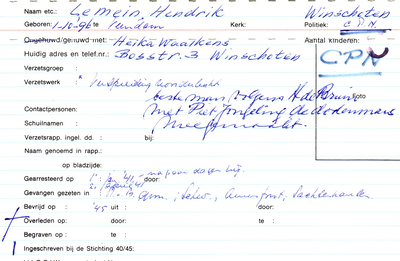 Naam etc.: Lemein, Hendrik Winschoten
Geboren: 1-10-96 te Pundem Kerk: Politiek: C.P.N.
Ongehuwd/gehuwd met: Heika Waalkens Aantal kinderen:
Huidig adres en telef.nr.: Bosstr. 3 Winschoten
CPN
Verzetsgroep :
Verzetswerk :
beste man volgens H de Bruin
Contactpersonen: met Piet
Schuilnaam : meegemaakt.
Verzetsrapp. ingel. dd. : bij: Foto
Naam genoemd in rapp.:
op bladzijde:
Gearresteerd op : '41 na paar dagen vrij. door:
2.
Gevangen gezeten in : Gron., Schev., Amersfoort, Sachsenhausen
Bevrijd op : '45 uit : door:
Overleden op: door: te :
Begraven op : te :
Ingeschreven bij de Stichting 40/45: